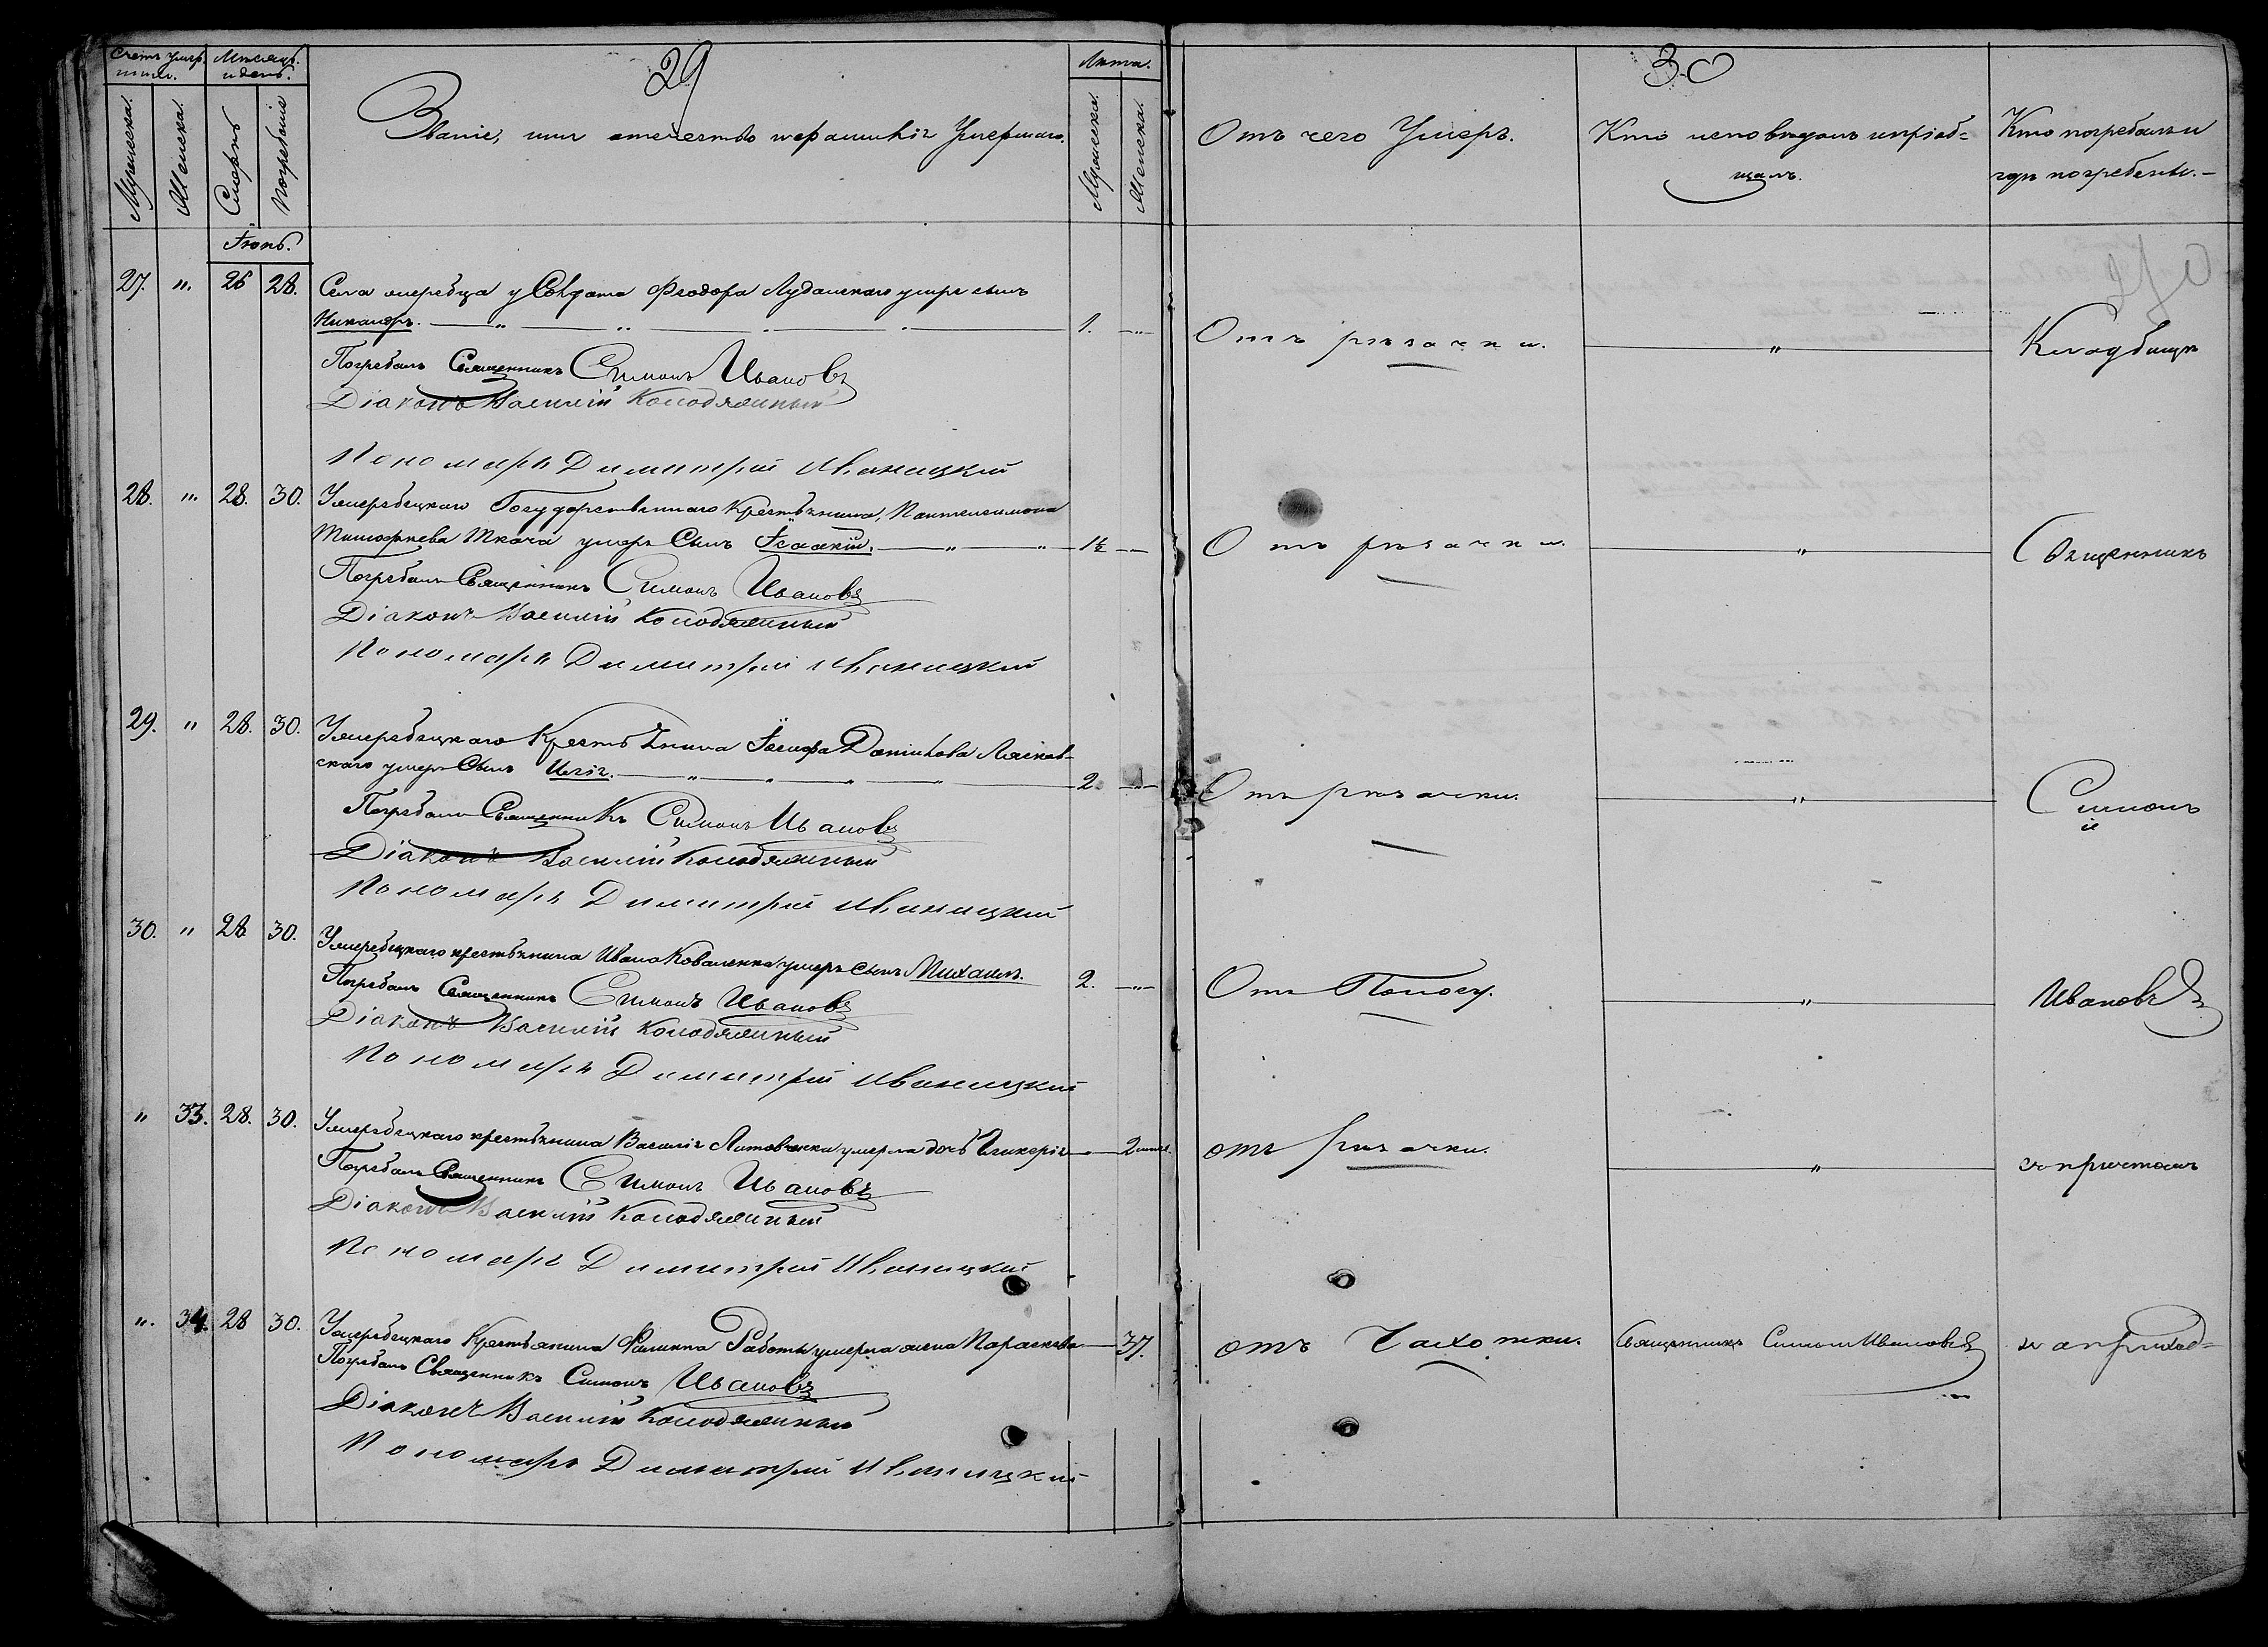 29
Счетъ умер-
шихъ.
Мѣсяцъ
и день.
Мужеска.
Женска.
Смерть
Погребенія
Званіе, имя отечество и фамилія Умершаго.
Лѣта.
Мужеска.
Женска.
Іюнь.
27. " 26 28. Села Жеребца у Солдата Феодора умре сынъ
Никаноръ. 1.
Погребалъ Священникъ Симонъ Ивановъ
Діаконъ Василій Колодяжный
Пономарь Димитрій Иваницкій
28. " 28. 30. Жеребецкаго Государственнаго Крестьянина, Пантелеимона
Тимофѣева Ткача умеръ Сынъ Ісаакій. 1½
Погребалъ Священникъ Симонъ Ивановъ
Діаконъ Василій Колодяжный
Пономарь Димитрій Иваницкій
29. " 28. 30. Жеребецкаго Крестьянина Іосифа Данилова Лясков-
скаго умеръ Сынъ Илія. 2.
Погребалъ Священникъ Симонъ Ивановъ
Діаконъ Василій Колодяжный
Пономарь Димитрій Иваницкій
30. " 28 30. Жеребецкаго крестьянина Ивана Коваленка умеръ сынъ Михаилъ. 2.
Погребалъ Священникъ Симонъ Ивановъ
Діаконъ Василій Колодяжный
Пономарь Димитрій Иваницкій
" 33. 28. 30. Жеребецкаго крестьянина Василія Литовченка умерла дочь Гликерія 2
Погребалъ Священникъ Симонъ Ивановъ
Діаконъ Василій Колодяжный
Пономарь Димитрій Иваницкій
" 34. 28 30. Жеребецкаго Крестьянина Филиппа Работы умерла жена Параскева 37
Погребалъ Священникъ Симонъ Ивановъ
Діаконъ Василій Колодяжный
Пономарь Димитрій Иваницкій
30
Отъ чего Умеръ.
Кто исповѣдалъ и пріоб-
щалъ.
Кто погребалъ и
гдѣ погребены.
Отъ рѣзачки. " Кладбищѣ
Отъ рѣзачки. " Священникъ
Отъ рѣзачки. " Симонъ
Отъ Поносу. " Ивановъ
отъ рѣзачки. " съ причтомъ
отъ Чахотки. Священникъ Симонъ Ивановъ на приход-